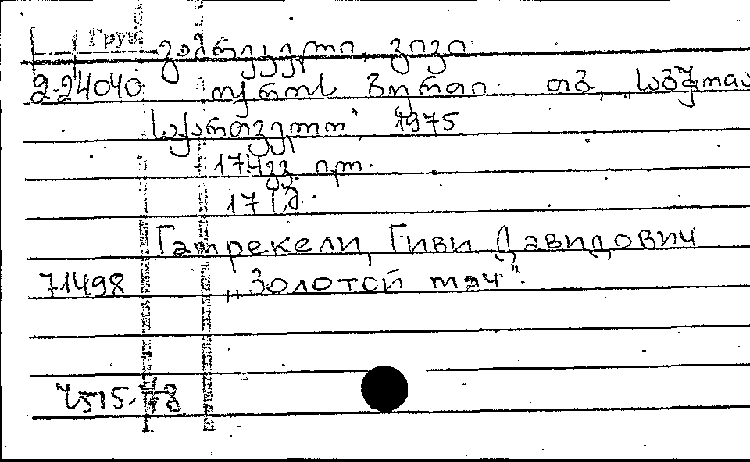 Груз გატრეკელი, გივი.
2-24040 ოქროს ბურთი. თბ., საბჭოთა
საქართველო, 1975
174გვ. ილ.
Гатрекели, Гиви Давидович
71498 „Золотой мяч".
4515-78